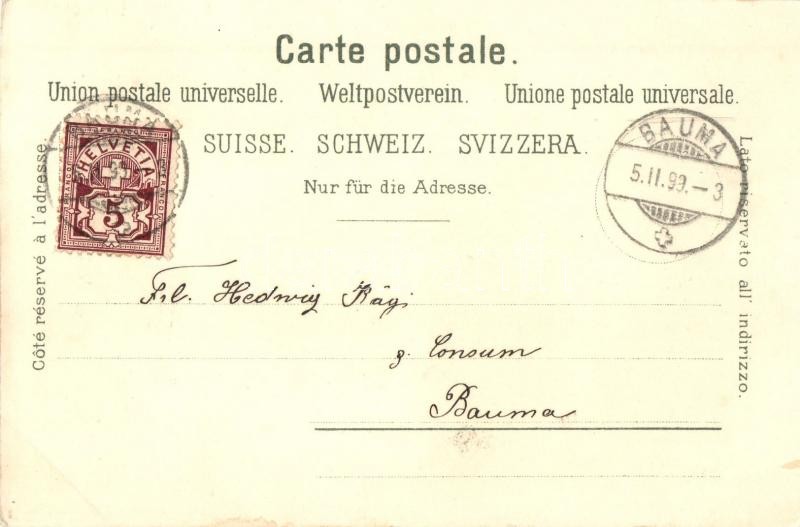 Carte postale.
Union postale universelle. Weltpostverein. Unione postale universale.
SUISSE. SCHWEIZ. SVIZZERA.
Nur für die Adresse.
Côté réservé à l'adresse.
Lato riservato all' indirizzo.
HELVETIA
5
BAUMA
5.II.99.-3
Frl. Hedwig Kägi
z. Consum
Bauma